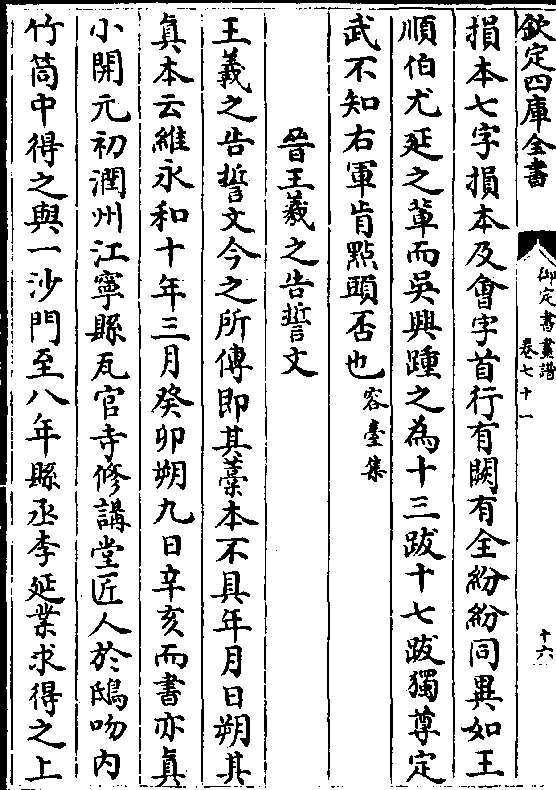 欽定四庫全書
御定書畫譜
卷七十一
十六
損本七字損本及會字首行有闕有全紛紛同異如王
順伯尤延之輩而吳興踵之為十三跋十七跋獨尊定
武不知右軍肯點頭否也容臺集
晉王羲之告誓文
王羲之告誓文今之所傳即其藁本不具年月日朔其
真本云維永和十年三月癸卯朔九日辛亥而書亦真
小開元初潤州江寧縣瓦官寺修講堂匠人於鴟吻内
竹筒中得之與一沙門至八年縣丞李延業求得之上